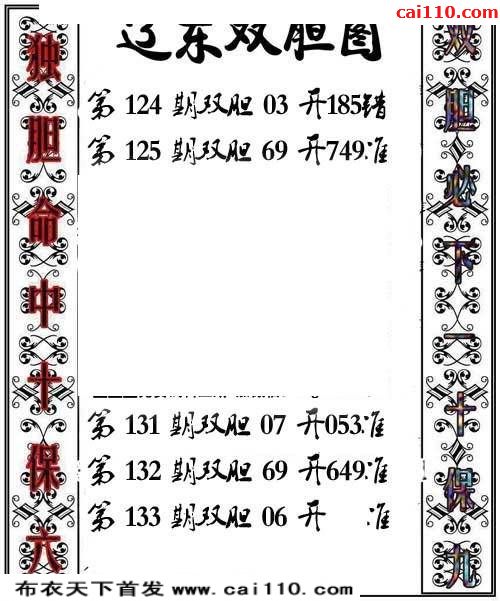 cai110.com
辽东双胆图
第 124 期双胆 03 开185错
第 125 期双胆 69 开749准
第 131 期双胆 07 开053准
第 132 期双胆 69 开649准
第 133 期双胆 06 开 准
独胆命中十保六
双胆必下一十保九
布衣天下首发 www.cai110.com